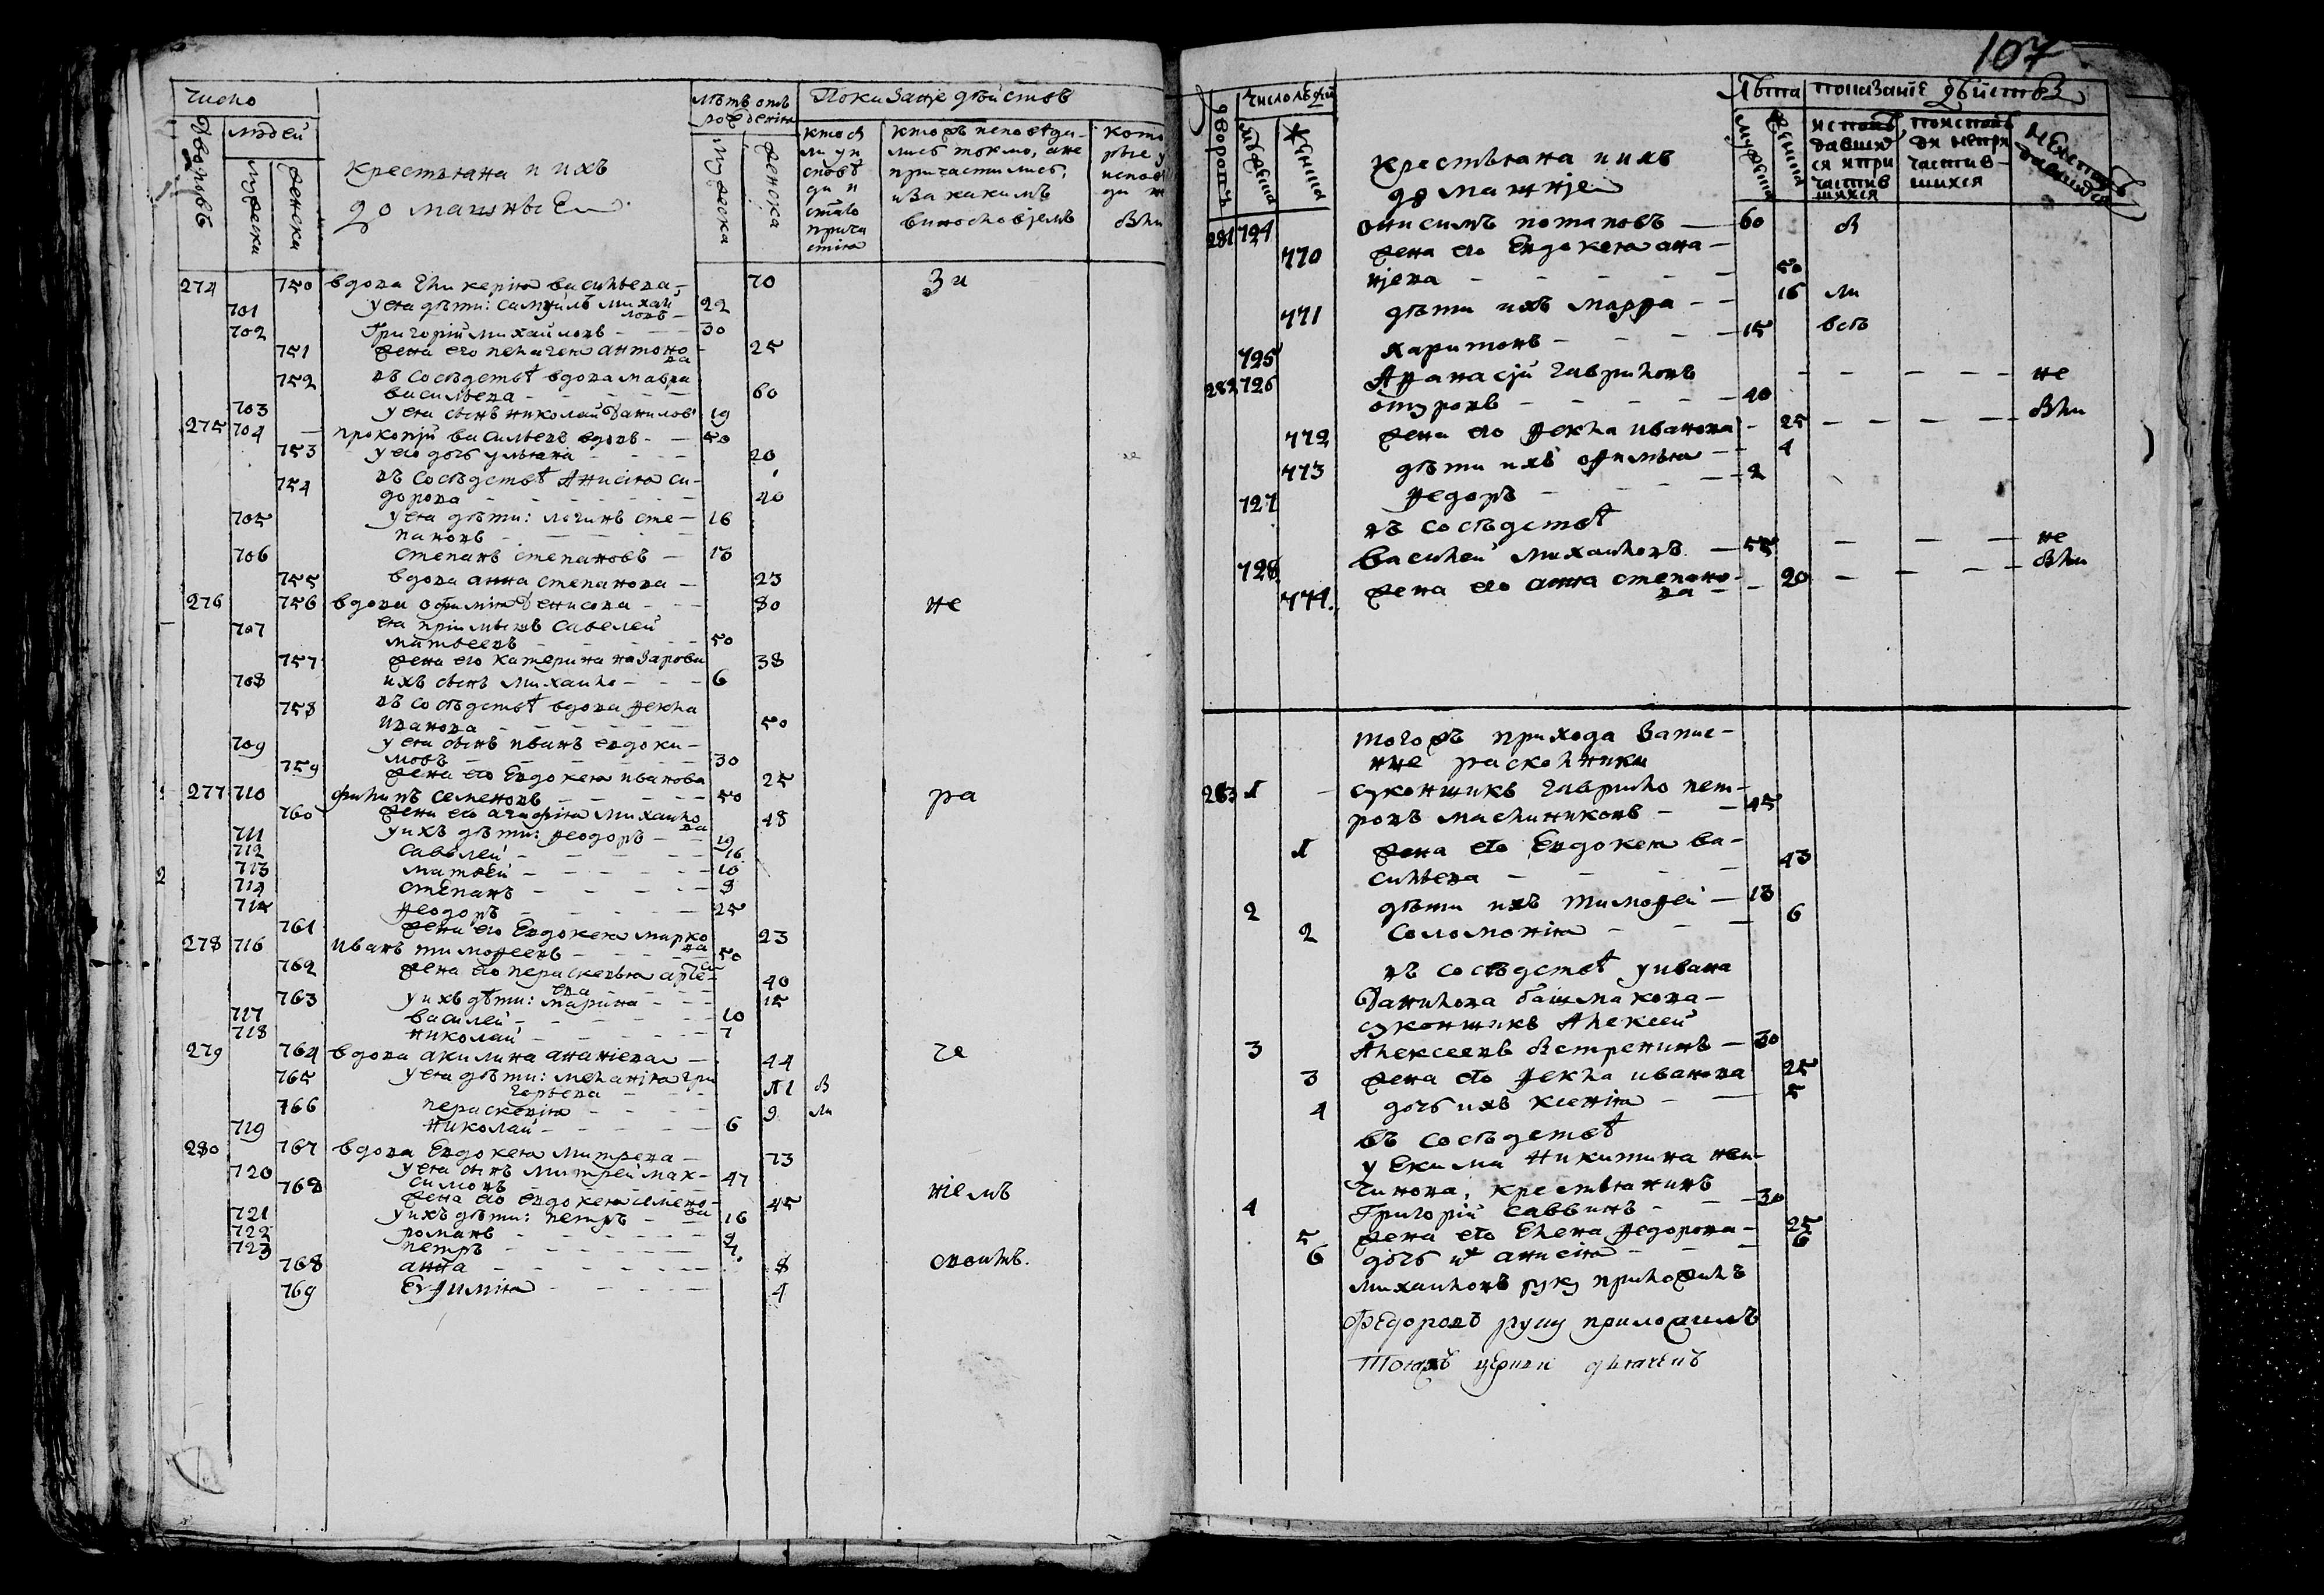 число
людей
дворовъ
мужеска
женска
крестьяна и ихъ
домашные
лѣтъ отъ
рождения
мужеска
женска
Показание дѣйствъ
кто ж исповѣда-
лись токмо, а не
причастились,
и за какимъ
винословиемъ
274 750 вдова Гликерия васильева 70 За
701 у ея дѣти: самуилъ михай
ловъ 22
702 Григорий михайловъ 30
751 жена его пелагея антоно
ва 25
752 въ сосѣдствѣ вдова мавра
васильева 60
703 у ея сынъ николай данилов 19
275 704 прокопий васильевъ вдовъ 50
753 у его дочь ульяна 20
754 въ сосѣдствѣ Анисия си-
дорова 40
705 у ея дѣти: логинъ сте- 16
пановъ
706 степанъ степановъ 13
755 вдова анна степанова 23
276 756 вдова офимия денисова 80 не
707 ея приимышъ савелей
матвеевъ 50
757 жена его катерина назарова 38
708 ихъ сынъ михаило 6
758 въ сосѣдствѣ вдова фекла
иванова 50
709 у ея сынъ иванъ евдоки-
мовъ 30
759 жена его Евдокея иванова 25
277 710 филипъ семеновъ 50 ра
760 жена его агафия михаило
ва 48
711 у ихъ дѣти: феодоръ 19
712 савелей 16
713 матфей 10
714 степанъ 8
715 феодоръ 25
761 жена его Евдокея марко
ва 23
278 716 иванъ тимофеевъ 50
762 жена его параскевья арте-
ева 40
763 у ихъ дѣти: марина 15
717 василей 10
718 николай 7
279 764 вдова акилина ананиева 44 че
765 у ея дѣти: мелания гри
горьева 11 в
766 параскевия 9 ли
719 николай 6
280 767 вдова Евдокея митрева 73
720 у ея сынъ митрей мак- 47
симовъ
768 жена его евдокея семено-
ва 45 нiемъ
721 у ихъ дѣти: петръ 16
722 романъ 9
723 петръ 7
768 анна 8 своимъ.
769 Евфимия 4
107
дворовъ
число людей
мужеска
женска
крестьяна и ихъ
домашние
лѣта
мужеска
женска
показание дѣйствъ
исповѣ
давших
ся и при
частив
шихся
по исповѣ
ди непри
частив-
шихся
неисповѣ
давшихся
281 724 онисимъ потаповъ 60 в
770 жена его Евдокея ана-
ниева 50
771 дѣти ихъ марфа 16 ли
725 харитонъ 15 всѣ
282 726 Афанасий гавриловъ не
отуровъ 40
772 жена его фекла иванова 25 вли
773 дѣти ихъ офимья 4
727 федоръ 2
въ сосѣдствѣ
728 василей михаиловъ 55 не
774 жена его анна степано-
ва 20 вли
того жъ прихода запис-
ные расколники
283 1 суконщикъ гаврило пет-
ровъ маслениковъ 45
1 жена его Евдокея ва-
сильева 43
2 дѣти ихъ тимофей 13
2 соломония 6
въ сосѣдствѣ у ивана
данилова башмакова
суконщикъ Алексей
3 Алексеевъ встренинъ 30
3 жена его фекла иванова 25
4 дочь ихъ ксения 5
въ сосѣдствѣ
у Екима никитина
крестьянинъ
4 Григорий саввинъ 30
5 жена его Елена федорова 25
6 дочь их анисия 6
михаиловъ руку приложилъ
Федоровъ руку приложилъ
Тояжъ церкви